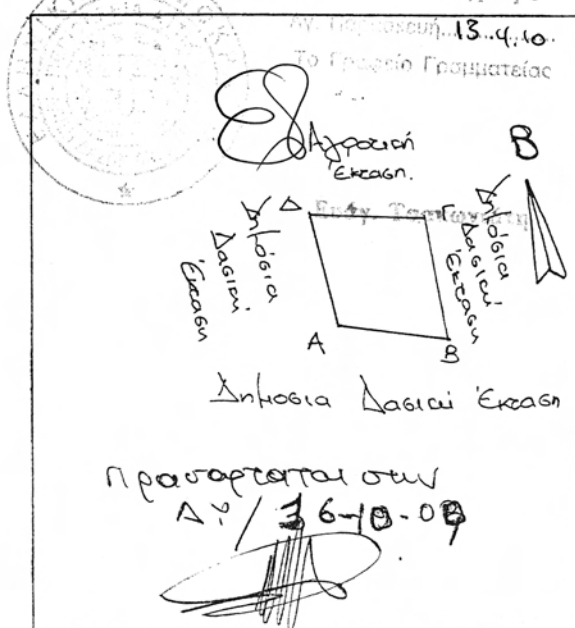 Αγ. Παρασκευή 13.4.10
Το Γραφείο Γραμματείας
Αγροτική
Έκταση.
Β
Δ
Γ
Δημόσια
Δασική
Έκταση
Δημόσια
Δασική
Έκταση
Α
Β
Δημόσια Δασική Έκταση
Προσαρτάται στην
ΔΥ/